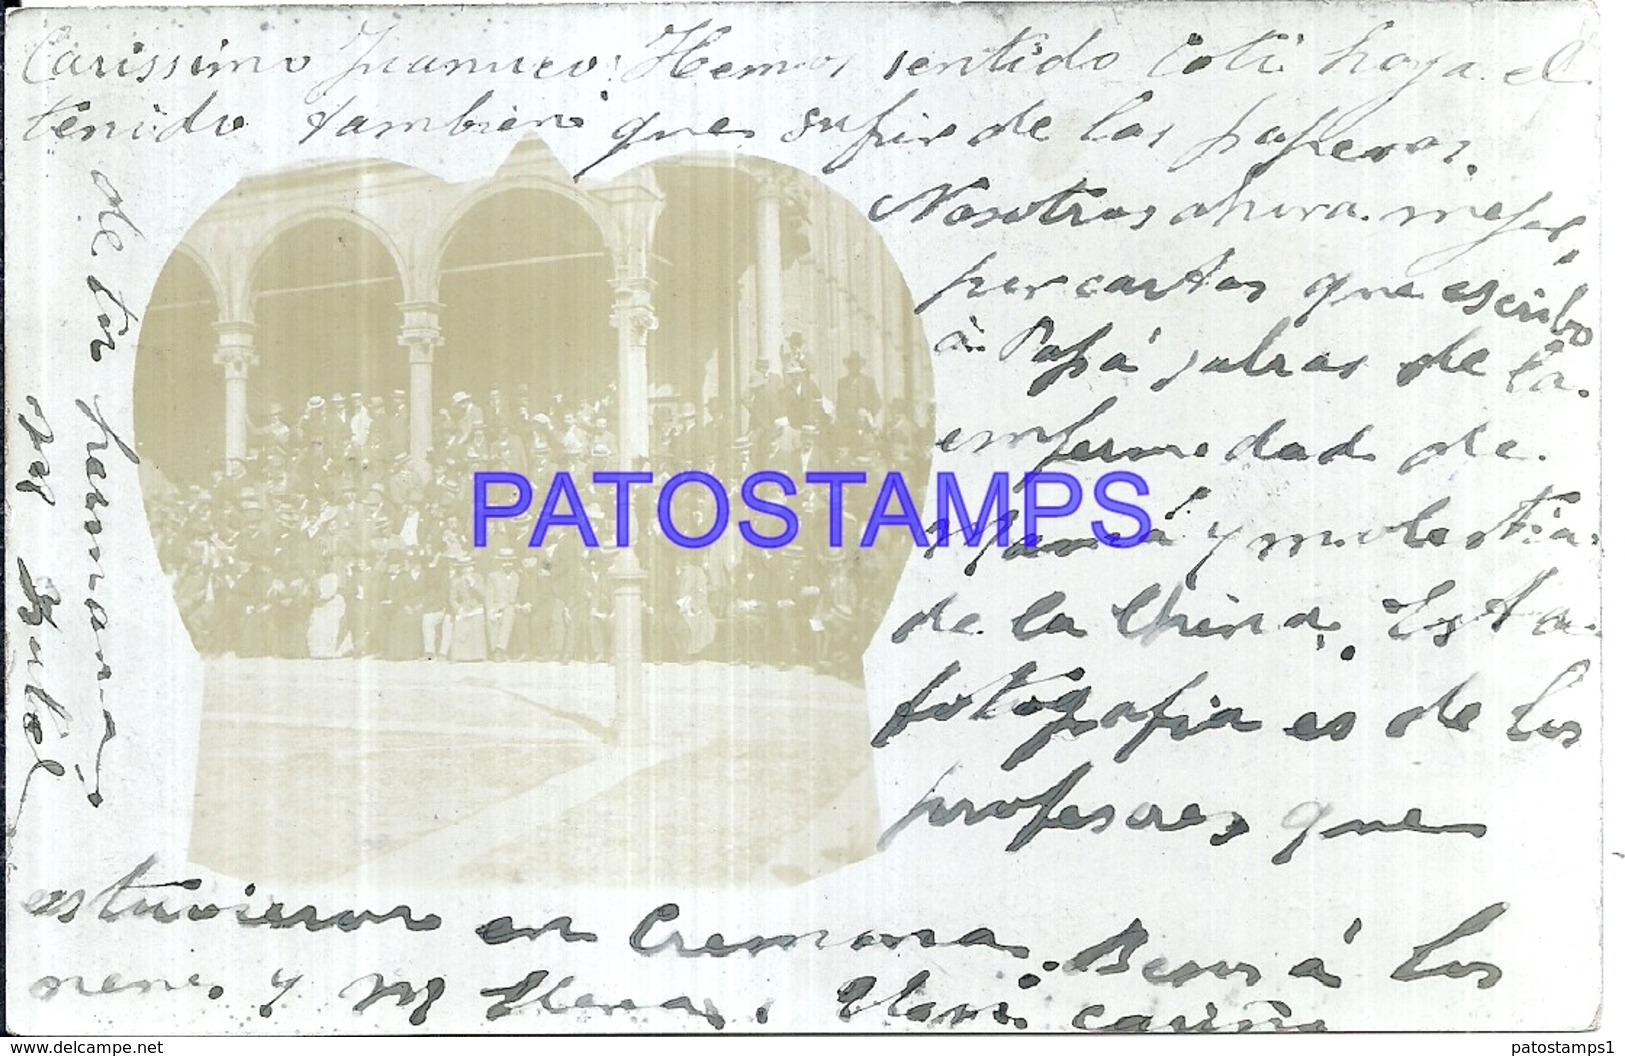 Carissimo Juanuco: Hemos sentido Coti haya el
tenido tambien que sufrir de las paperas.
Nosotros ahora mejor,
por cartas que escribo
à Papá sabras de la
enfermedad de
Mamá y molestia
de la China. Esta
fotografia es de los
profesores que
estuvieron en Cremona. Besos á los
nene y M Elena, cariño
de tu hermana
PATOSTAMPS
www.delcampe.net
patostamps1